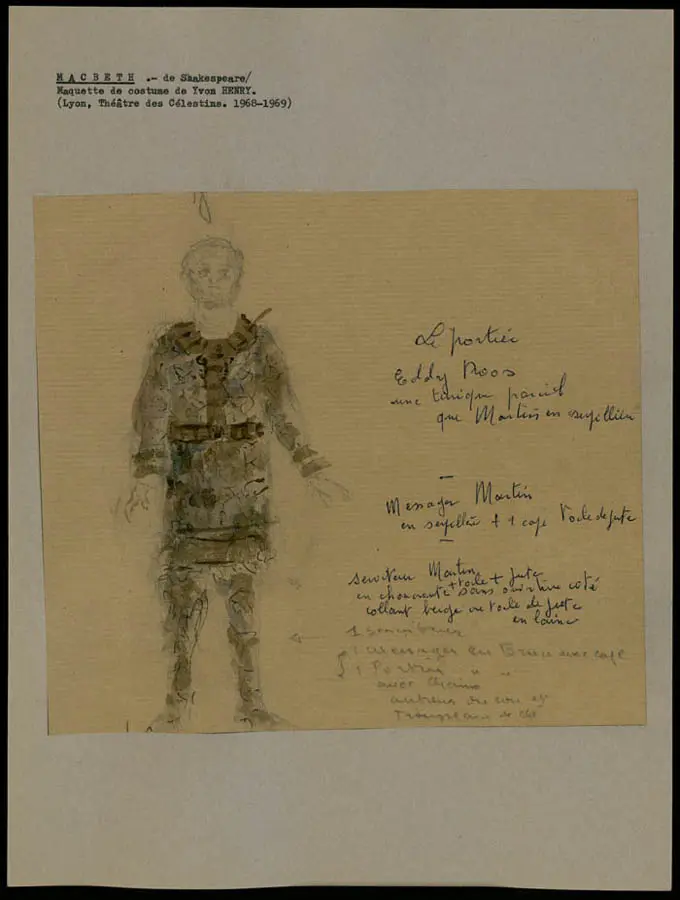 MACBETH .- de Shakespeare/
Maquette de costume de Yvon HENRY.
(Lyon, Théâtre des Célestins. 1968-1969)
Le portier
Eddy Roos
une tunique pareil
que Martin en serpillière
Messager Martin
en serpillière + 1 cape Toile de jute
serviteur Martin
+ toile + jute
en sans côté
collant beige ou toile de jute
en laine
1 serviteur
1 messager en Brun avec cape
1 Portier " "
avec